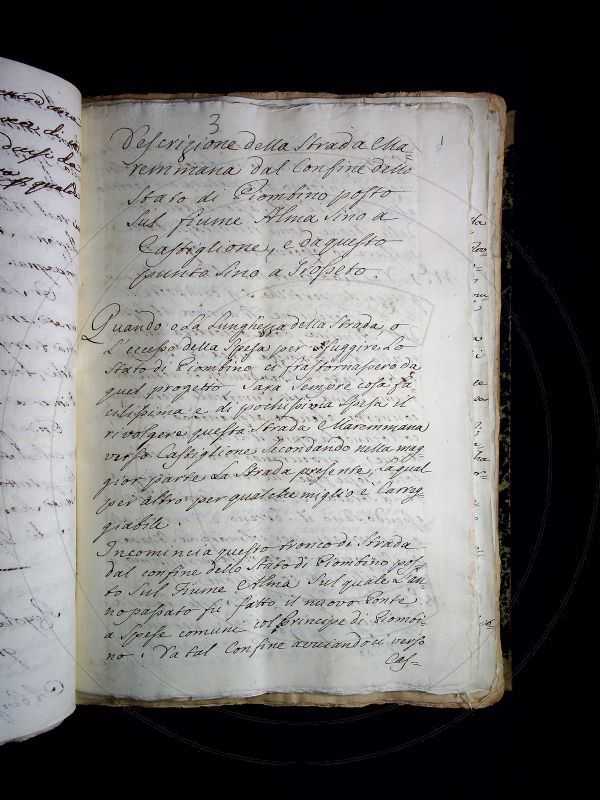 3
1
Descrizione della Strada Ma=
remmana dal Confine dello
Stato di Piombino posto
sul fiume Alma sino a
Castiglione, e da questo
punto sino a Grosseto.
Quando o La Lunghezza della Strada, o
L'eccesso della Spesa per sfuggire Lo
Stato di Piombino ci frastornassero da
quel progetto Sarà sempre cosa fa
cilissima, e di pochissima Spesa il
rivolgere questa Strada Maremmana
verso Castiglione secondando nella mag=
gior parte La Strada presente, la qual
per altro per qualche miglio è Carreg=
giabile.
Incomincia questo tronco di Strada
dal confine dello Stato di Piombino pos=
to sul Fiume Alma sul quale L'an=
no passato fù fatto il nuovo Ponte
a Spese comuni col Principe di Piombi=
no. Da tal Confine avviandoci verso
Cas=